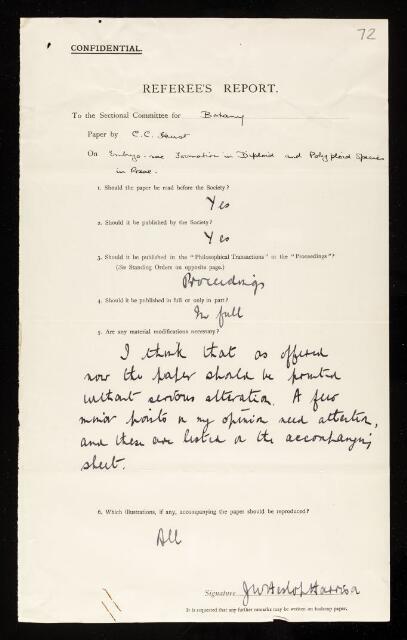 72
CONFIDENTIAL.
REFEREE'S REPORT.
To the Sectional Committee for Botany
Paper by C.C. Hurst
On Embryo-sac Formation in Diploid and Polyploid Species
in Rosae.
1. Should the paper be read before the Society?
Yes
2. Should it be published by the Society?
Yes
3. Should it be published in the "Philosophical Transactions" or the "Proceedings"?
(See Standing Orders on opposite page.)
Proceedings
4. Should it be published in full or only in part?
In full
5. Are any material modifications necessary?
I think that as offered
now the paper should be printed
without serious alteration. A few
minor points in my opinion need attention,
and these are listed on the accompanying
sheet.
6. Which illustrations, if any, accompanying the paper should be reproduced?
All
Signature J W Heslop Harrison
It is requested that any further remarks may be written on foolscap paper.